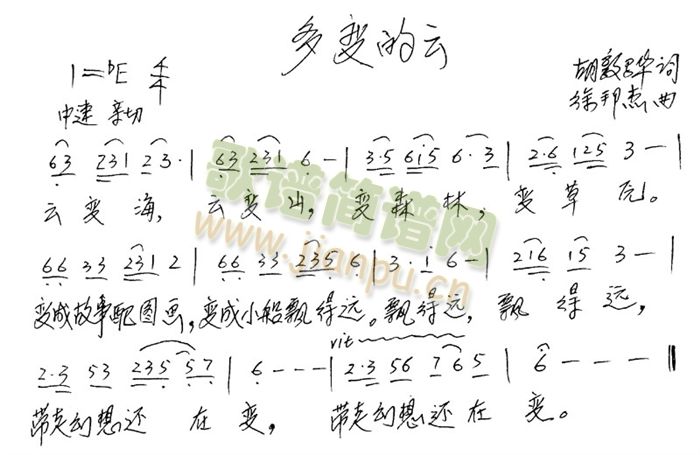 多变的云
1=♭E 4/4
胡敦华词
中速 亲切
徐邦杰曲
63 231 23· | 63 231 6 - | 3·5 615 6·3 | 2·6 125 3 - |
云变海，云变山，变森林，变草原。
66 33 2312 | 66 33 2356 | 3·i 6 - | 216 15 3 - |
变成故事配图画，变成小船飘得远。飘得远，飘得远，
rit
2·3 53 235 57 | 6 - - - | 2·3 56 765 | 6 - - - ‖
带走幻想还在变，带走幻想还在变。
歌谱简谱网
www.jianpu.cn